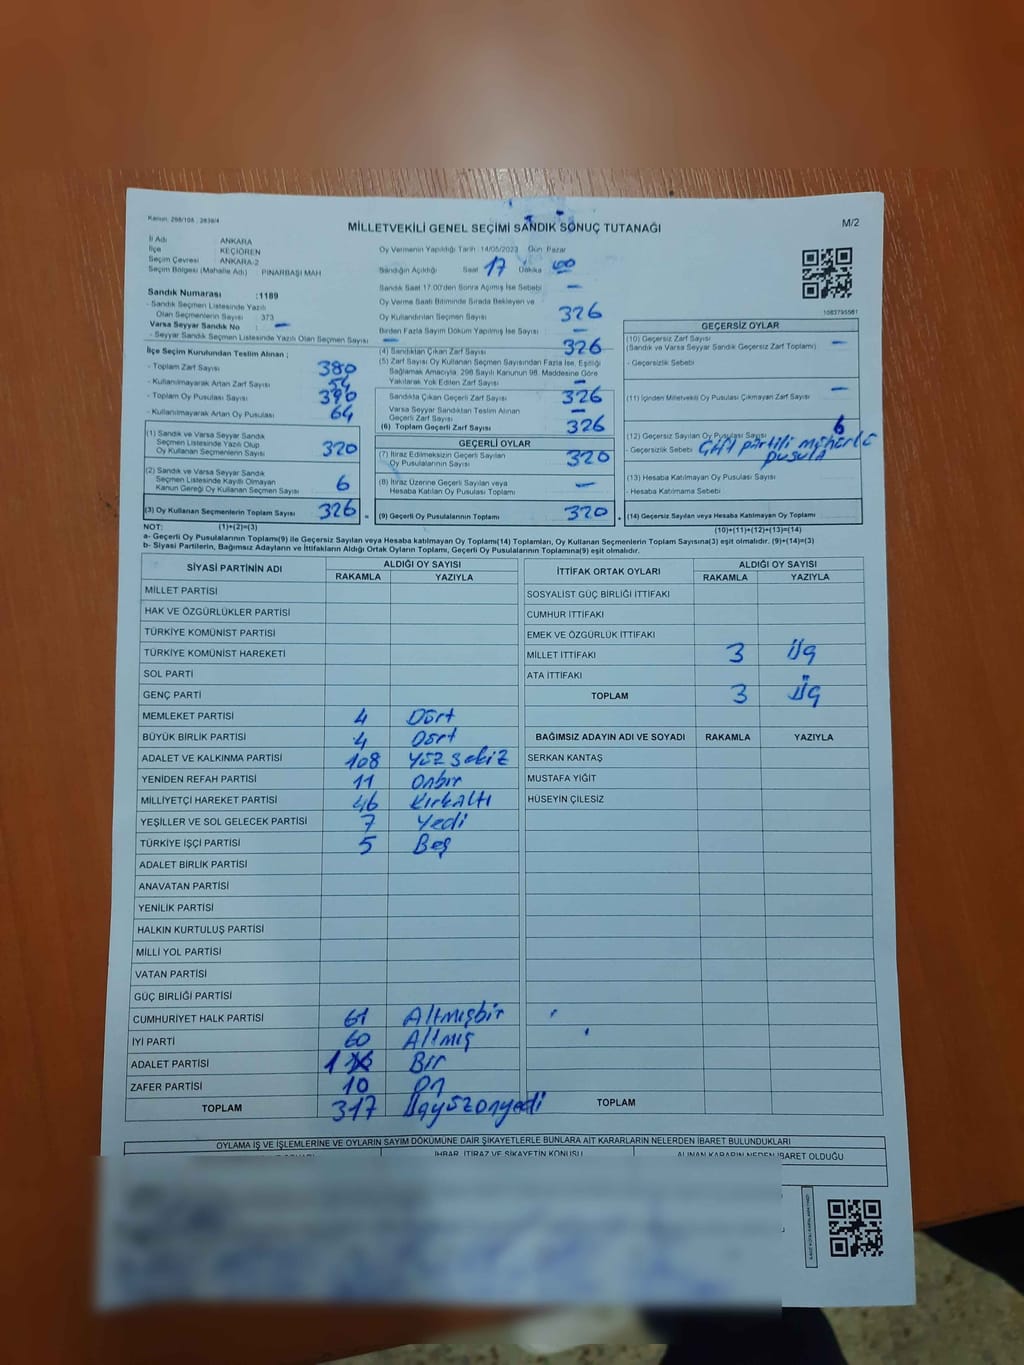 Kanun: 298/105 , 2839/4
MİLLETVEKİLİ GENEL SEÇİMİ SANDIK SONUÇ TUTANAĞI
M/2
İl Adı : ANKARA
İlçe : KEÇİÖREN
Seçim Çevresi : ANKARA-2
Seçim Bölgesi (Mahalle Adı) : PINARBAŞI MAH
Oy Vermenin Yapıldığı Tarih : 14/05/2023 Gün Pazar
Sandığın Açıldığı Saat 17 Dakika 00
Sandık Saat 17.00'den Sonra Açılmış İse Sebebi –
Oy Verme Saati Bitiminde Sırada Bekleyen ve
Oy Kullandırılan Seçmen Sayısı 326
Birden Fazla Sayım Döküm Yapılmış İse Sayısı –
Sandık Numarası :1189
- Sandık Seçmen Listesinde Yazılı
Olan Seçmenlerin Sayısı : 373
Varsa Seyyar Sandık No : –
- Seyyar Sandık Seçmen Listesinde Yazılı Olan Seçmen Sayısı : –
İlçe Seçim Kurulundan Teslim Alınan ;
- Toplam Zarf Sayısı 380
- Kullanılmayarak Artan Zarf Sayısı 54
- Toplam Oy Pusulası Sayısı 390
- Kullanılmayarak Artan Oy Pusulası 64
(1) Sandık ve Varsa Seyyar Sandık
Seçmen Listesinde Yazılı Olup
Oy Kullanan Seçmen Sayısı 320
(2) Sandık ve Varsa Seyyar Sandık
Seçmen Listesinde Kaydı Olmayan
Kanun Gereği Oy Kullanan Seçmen Sayısı 6
(3) Oy Kullanan Seçmenlerin Toplam Sayısı 326
(4) Sandıktan Çıkan Zarf Sayısı 326
(5) Zarf Sayısı Oy Kullanan Seçmen Sayısından Fazla İse, Eşitliği
Sağlamak Amacıyla; 298 Sayılı Kanunun 98. Maddesine Göre
Yakılarak Yok Edilen Zarf Sayısı –
Sandıkta Çıkan Geçerli Zarf Sayısı 326
Varsa Seyyar Sandıktan Teslim Alınan
Geçerli Zarf Sayısı –
(6) Toplam Geçerli Zarf Sayısı 326
GEÇERLİ OYLAR
(7) İtiraz Edilmeksizin Geçerli Sayılan
Oy Pusulalarının Sayısı 320
(8) İtiraz Üzerine Geçerli Sayılan veya
Hesaba Katılan Oy Pusulası Toplamı –
= (9) Geçerli Oy Pusulalarının Toplamı 320
1083795561
GEÇERSİZ OYLAR
(10) Geçersiz Zarf Sayısı
(Sandık ve Varsa Seyyar Sandık Geçersiz Zarf Toplamı) –
- Geçersizlik Sebebi :
(11) İçinden Milletvekili Oy Pusulası Çıkmayan Zarf Sayısı –
(12) Geçersiz Sayılan Oy Pusulası Sayısı 6
- Geçersizlik Sebebi partili mühürlü
pusula
(13) Hesaba Katılmayan Oy Pusulası Sayısı
- Hesaba Katılmama Sebebi :
+ (14) Geçersiz Sayılan veya Hesaba Katılmayan Oy Toplamı
NOT: (1)+(2)=(3) (10)+(11)+(12)+(13)=(14)
a- Geçerli Oy Pusulalarının Toplamı(9) ile Geçersiz Sayılan veya Hesaba katılmayan Oy Toplamı(14) Toplamları, Oy Kullanan Seçmenlerin Toplam Sayısına(3) eşit olmalıdır. (9)+(14)=(3)
b- Siyasi Partilerin, Bağımsız Adayların ve İttifakların Aldığı Ortak Oyların Toplamı, Geçerli Oy Pusulalarının Toplamına(9) eşit olmalıdır.
SİYASİ PARTİNİN ADI ALDIĞI OY SAYISI
RAKAMLA YAZIYLA
MİLLET PARTİSİ
HAK VE ÖZGÜRLÜKLER PARTİSİ
TÜRKİYE KOMÜNİST PARTİSİ
TÜRKİYE KOMÜNİST HAREKETİ
SOL PARTİ
GENÇ PARTİ
MEMLEKET PARTİSİ 4 Dört
BÜYÜK BİRLİK PARTİSİ 4 Dört
ADALET VE KALKINMA PARTİSİ 108 Yüz sekiz
YENİDEN REFAH PARTİSİ 11 Onbir
MİLLİYETÇİ HAREKET PARTİSİ 46 Kırkaltı
YEŞİLLER VE SOL GELECEK PARTİSİ 7 Yedi
TÜRKİYE İŞÇİ PARTİSİ 5 Beş
ADALET BİRLİK PARTİSİ
ANAVATAN PARTİSİ
YENİLİK PARTİSİ
HALKIN KURTULUŞ PARTİSİ
MİLLİ YOL PARTİSİ
VATAN PARTİSİ
GÜÇ BİRLİĞİ PARTİSİ
CUMHURİYET HALK PARTİSİ 61 Altmışbir
İYİ PARTİ 60 Altmış
ADALET PARTİSİ 1 Bir
ZAFER PARTİSİ 10 On
TOPLAM 317 Üçyüzonyedi
İTTİFAK ORTAK OYLARI ALDIĞI OY SAYISI
RAKAMLA YAZIYLA
SOSYALİST GÜÇ BİRLİĞİ İTTİFAKI
CUMHUR İTTİFAKI
EMEK VE ÖZGÜRLÜK İTTİFAKI
MİLLET İTTİFAKI 3 Üç
ATA İTTİFAKI
TOPLAM 3 Üç
BAĞIMSIZ ADAYIN ADI VE SOYADI RAKAMLA YAZIYLA
SERKAN KANTAŞ
MUSTAFA YİĞİT
HÜSEYİN ÇİLESİZ
TOPLAM
OYLAMA İŞ VE İŞLEMLERİNE VE OYLARIN SAYIM DÖKÜMÜNE DAİR ŞİKAYETLERLE BUNLARA AİT KARARLARIN NELERDEN İBARET BULUNDUKLARI
İHBAR, İTİRAZ VE ŞİKAYETİN KONUSU ALINAN KARARIN NEDEN İBARET OLDUĞU